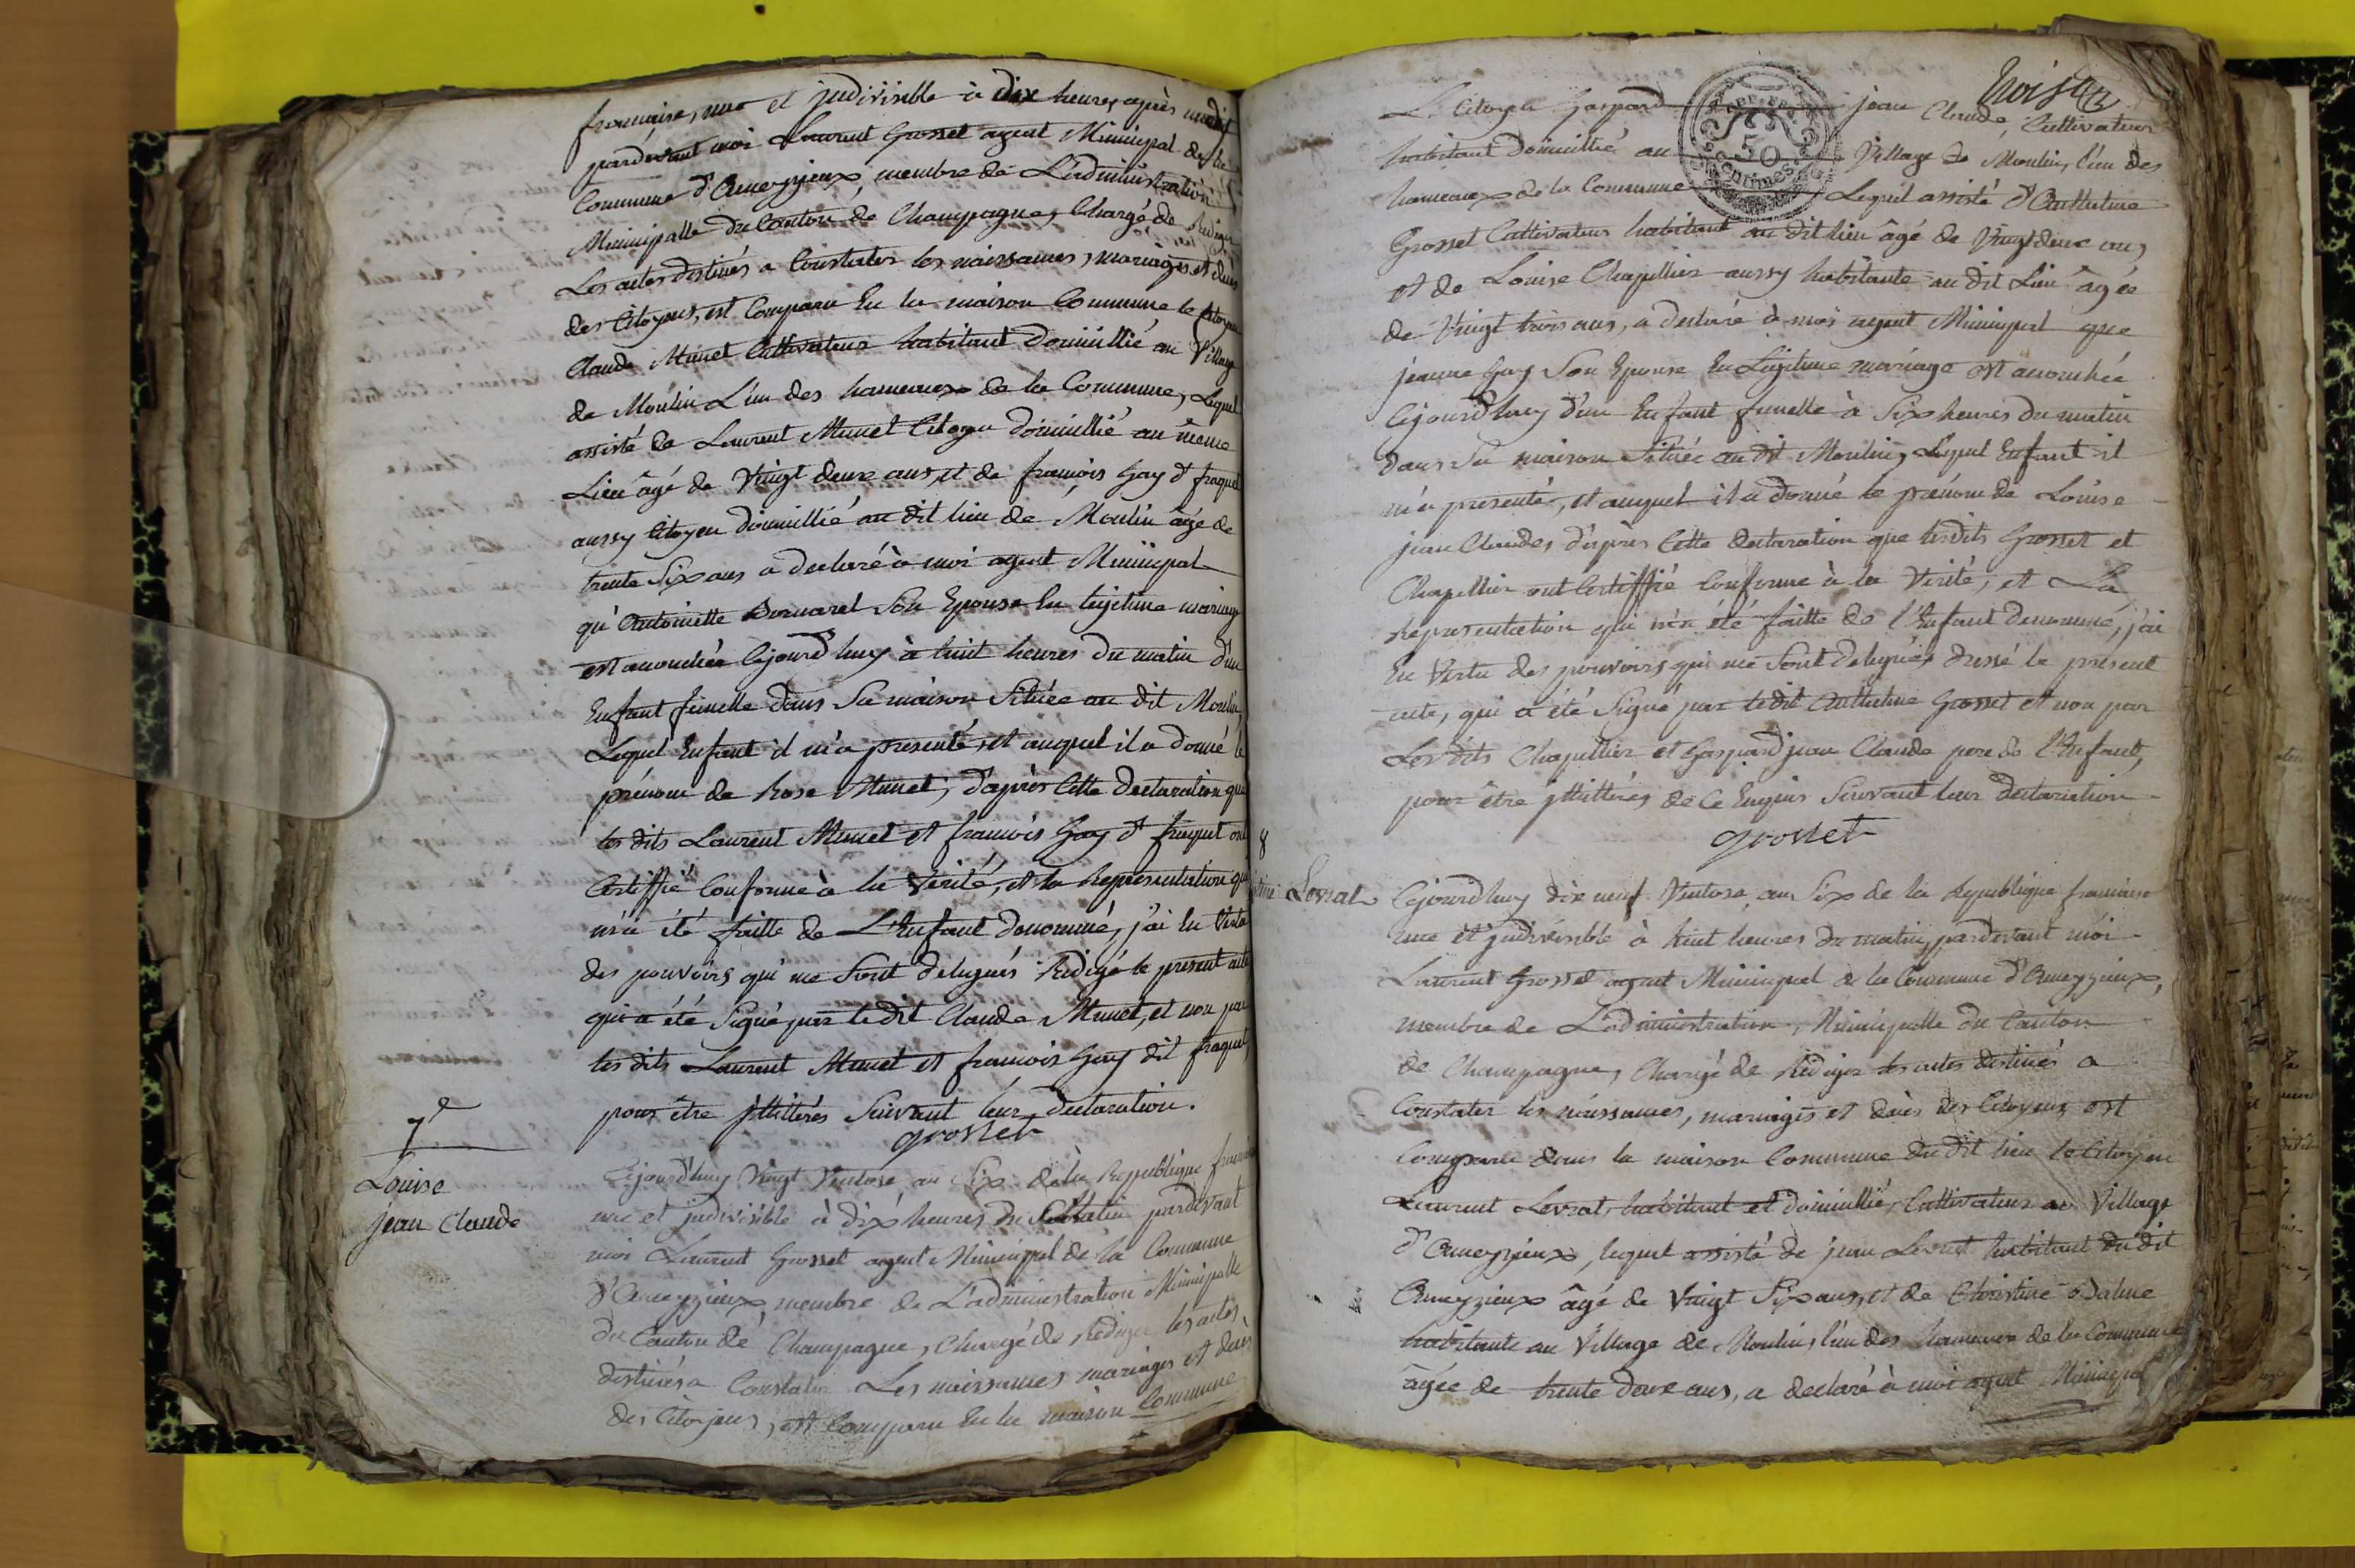 francaise, une et jndivisible à dix heures après midi
pardevant moi Laurent Grosset agent Municipal de la
Commune d'Ameyzieux, membre de L'administration
Municipalle du Canton de Champagne, Chargé de Rediger
Les actes destinés a Constater les naissances, mariages et décès
des Citoyens, est Comparu En la maison Commune le Citoyen
Claude Munet Cultivateur habitant Domicillié au Village
de Moulin L'un des hameaux de la Commune, Lequel
assisté de Laurent Munet Citoyen domicillié au même
Lieu âgé de Vingt deux ans, et de francois Gay dt fraquet
aussy Citoyen domicillié au dit lieu de Moulin âgé de
trente Six ans a declaré à moi agent Municipal
qu'Antoinette Son Epouse En legitime mariage
est accouchée Cejourd'huy à huit heures du matin d'un
Enfant femelle dans Sa maison Située au dit Moulin,
Lequel Enfant il m'a presenté, et auquel il a donné le
prénom de Rose Munet, d'après Cette Declaration que
les dits Laurent Munet et francois Gay dt fraquet ont
Certiffié Conforme à la Vérité, et la Representation qui
m'a été faitte de L'Enfant denommé, j'ai En Vertu
des pouvoirs qui me Sont delegués Redigé le present acte
qui a été Signé par le dit Claude Munet, et non par
les dits Laurent Munet et francois Gay dit fraquet,
pour être jllittérés Suivant leur declaration.
grosset
7e
Louise
jean Claude
Cejourd'huy Vingt Ventose an Six de la Republique francaise
une et jndivisible à dix heures du Matin pardevant
moi Laurent Grosset agent Municipal de la Commune
d'Ameyzieux, membre de L'administration Municipalle
du Canton de Champagne, Chargé de Rediger les actes
destinés a Constater Les naissances mariages et décès
des Citoyens, est Comparu En la maison Commune
trois
Le Citoyen Gaspard jean Claude, Cultivateur
REP. FRA.
50
centimes
habitant domicillié au Village de Moulin, l'un des
hameaux de la Commune Lequel assisté d'Anthelme
Grosset Cultivateur habitant au dit lieu âgé de Vingt deux ans
et de Louise Chapellier aussy habitante au dit Lieu âgée
de Vingt trois ans, a declaré à moi agent Municipal que
jeanne Gay Son Epouse En Légitime mariage est accouchée
Cejourd'huy d'un Enfant femelle à Six heures du matin
dans Sa maison Située au dit Moulin, Lequel Enfant il
m'a presenté, et auquel il a donné le prénom de Louise
jean Claude, d'après Cette declaration que lesdits Grosset et
Chapellier ont Certiffié Conforme à la Vérité, et La
Representation qui m'a été faitte de l'Enfant denommé, j'ai
En Vertu des pouvoirs qui me Sont delegués dressé le present
acte, qui a été Signé par ledit Anthelme Grosset et non par
Les dits Chapellier et Gaspard jean Claude pere de l'Enfant,
pour être jllittérés de Ce Enquis Suivant leur declaration
grosset
8
Levrat
Cejourd'huy dix neuf Ventose, an Six de la Republique francaise
une et jndivisible à huit heures du matin, pardevant moi
Laurent Grosset agent Municipal de la Commune d'Ameyzieux,
membre de L'administration, Municipalle du Canton
de Champagne, Chargé de Rediger les actes destinés a
Constater les naissances, mariages et décès des Citoyens est
Comparu dans la maison Commune du dit lieu le Citoyen
Laurent Levrat habitant et domicillié, Cultivateur au Village
d'Ameyzieux, lequel assisté de jean Levrat habitant du dit
Ameyzieux âgé de Vingt Six ans, et de Christine
habitante au Village de Moulin, l'un des hameaux de la Commune
âgée de trente deux ans, a declaré à moi agent Municipal